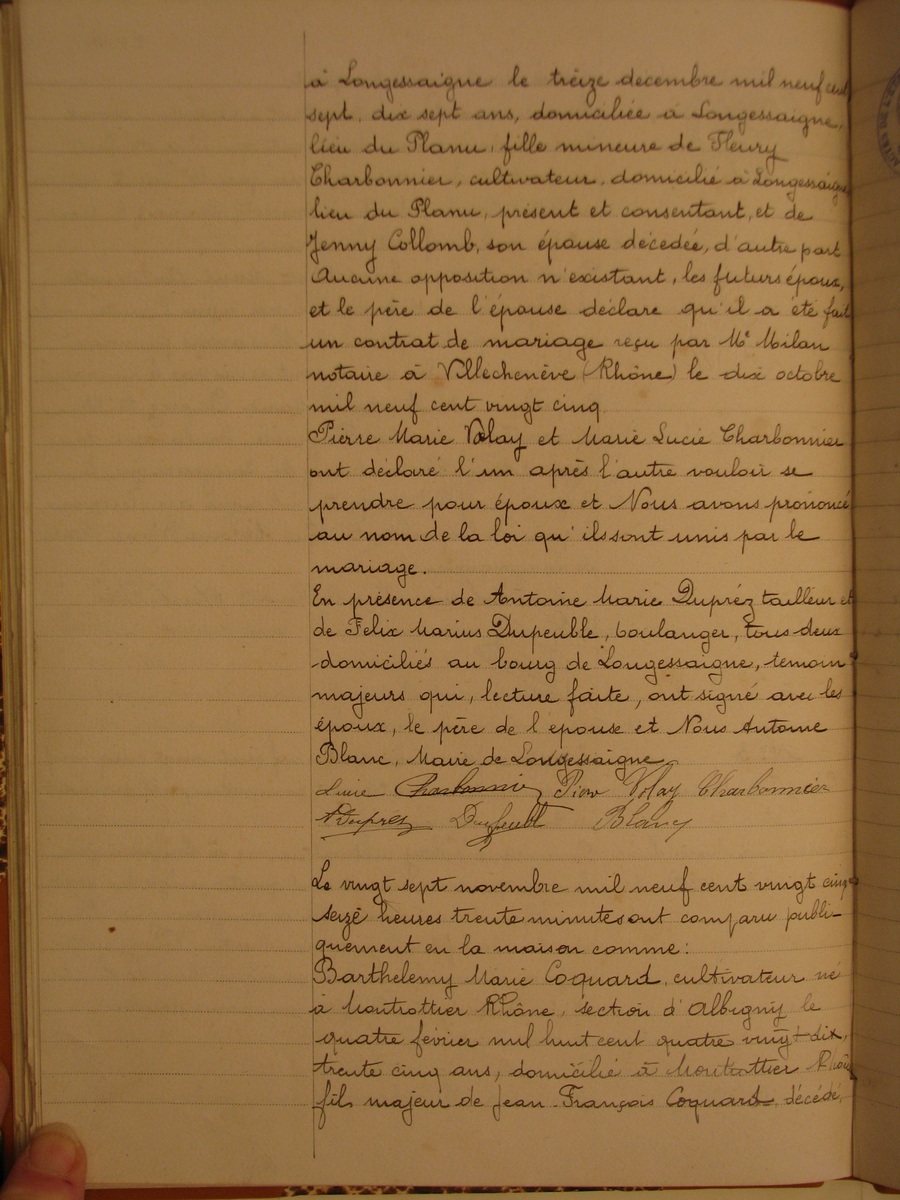 à Longessaigne le treize decembre mil neuf cent
sept, dix sept ans, domiciliée à Longessaigne,
lieu du Planu, fille mineure de Fleury
Charbonnier, cultivateur, domicilié à Longessaigne
lieu du Planu, présent et consentant, et de
Jenny Collomb, son épouse décedée, d'autre part
Aucune opposition n'existant, les futurs époux,
et le père de l'épouse déclare qu'il a été fait
un contrat de mariage reçu par Me Milan
notaire à Villechenève (Rhône) le dix octobre
mil neuf cent vingt cinq
Pierre Marie Volay et Marie Lucie Charbonnier
ont déclaré l'un après l'autre vouloir se
prendre pour époux et Nous avons prononcé
au nom de la loi qu'ils sont unis par le
mariage.
En présence de Antoine Marie Dupréz tailleur et
de Felix Marius Dupeuble, boulanger, tous deux
domiciliés au bourg de Longessaigne, temoins
majeurs qui, lecture faite, ont signé avec les
époux, le père de l'epouse et Nous Antoine
Blanc, Maire de Longessaigne
Charbonnier Volay Charbonnier
ADuprez Dupeuble Blanc
Le vingt sept novembre mil neuf cent vingt cinq
seize heures trente minutes ont comparu publi-
quement en la maison comme:
Barthelemy Marie Coquard, cultivateur né
à Montrottier Rhône, section d'Albigny le
quatre février mil huit cent quatre vingt-dix,
trente cinq ans, domicilié à Montrottier Rhône
fils majeur de Jean-François Coquard, décédé,